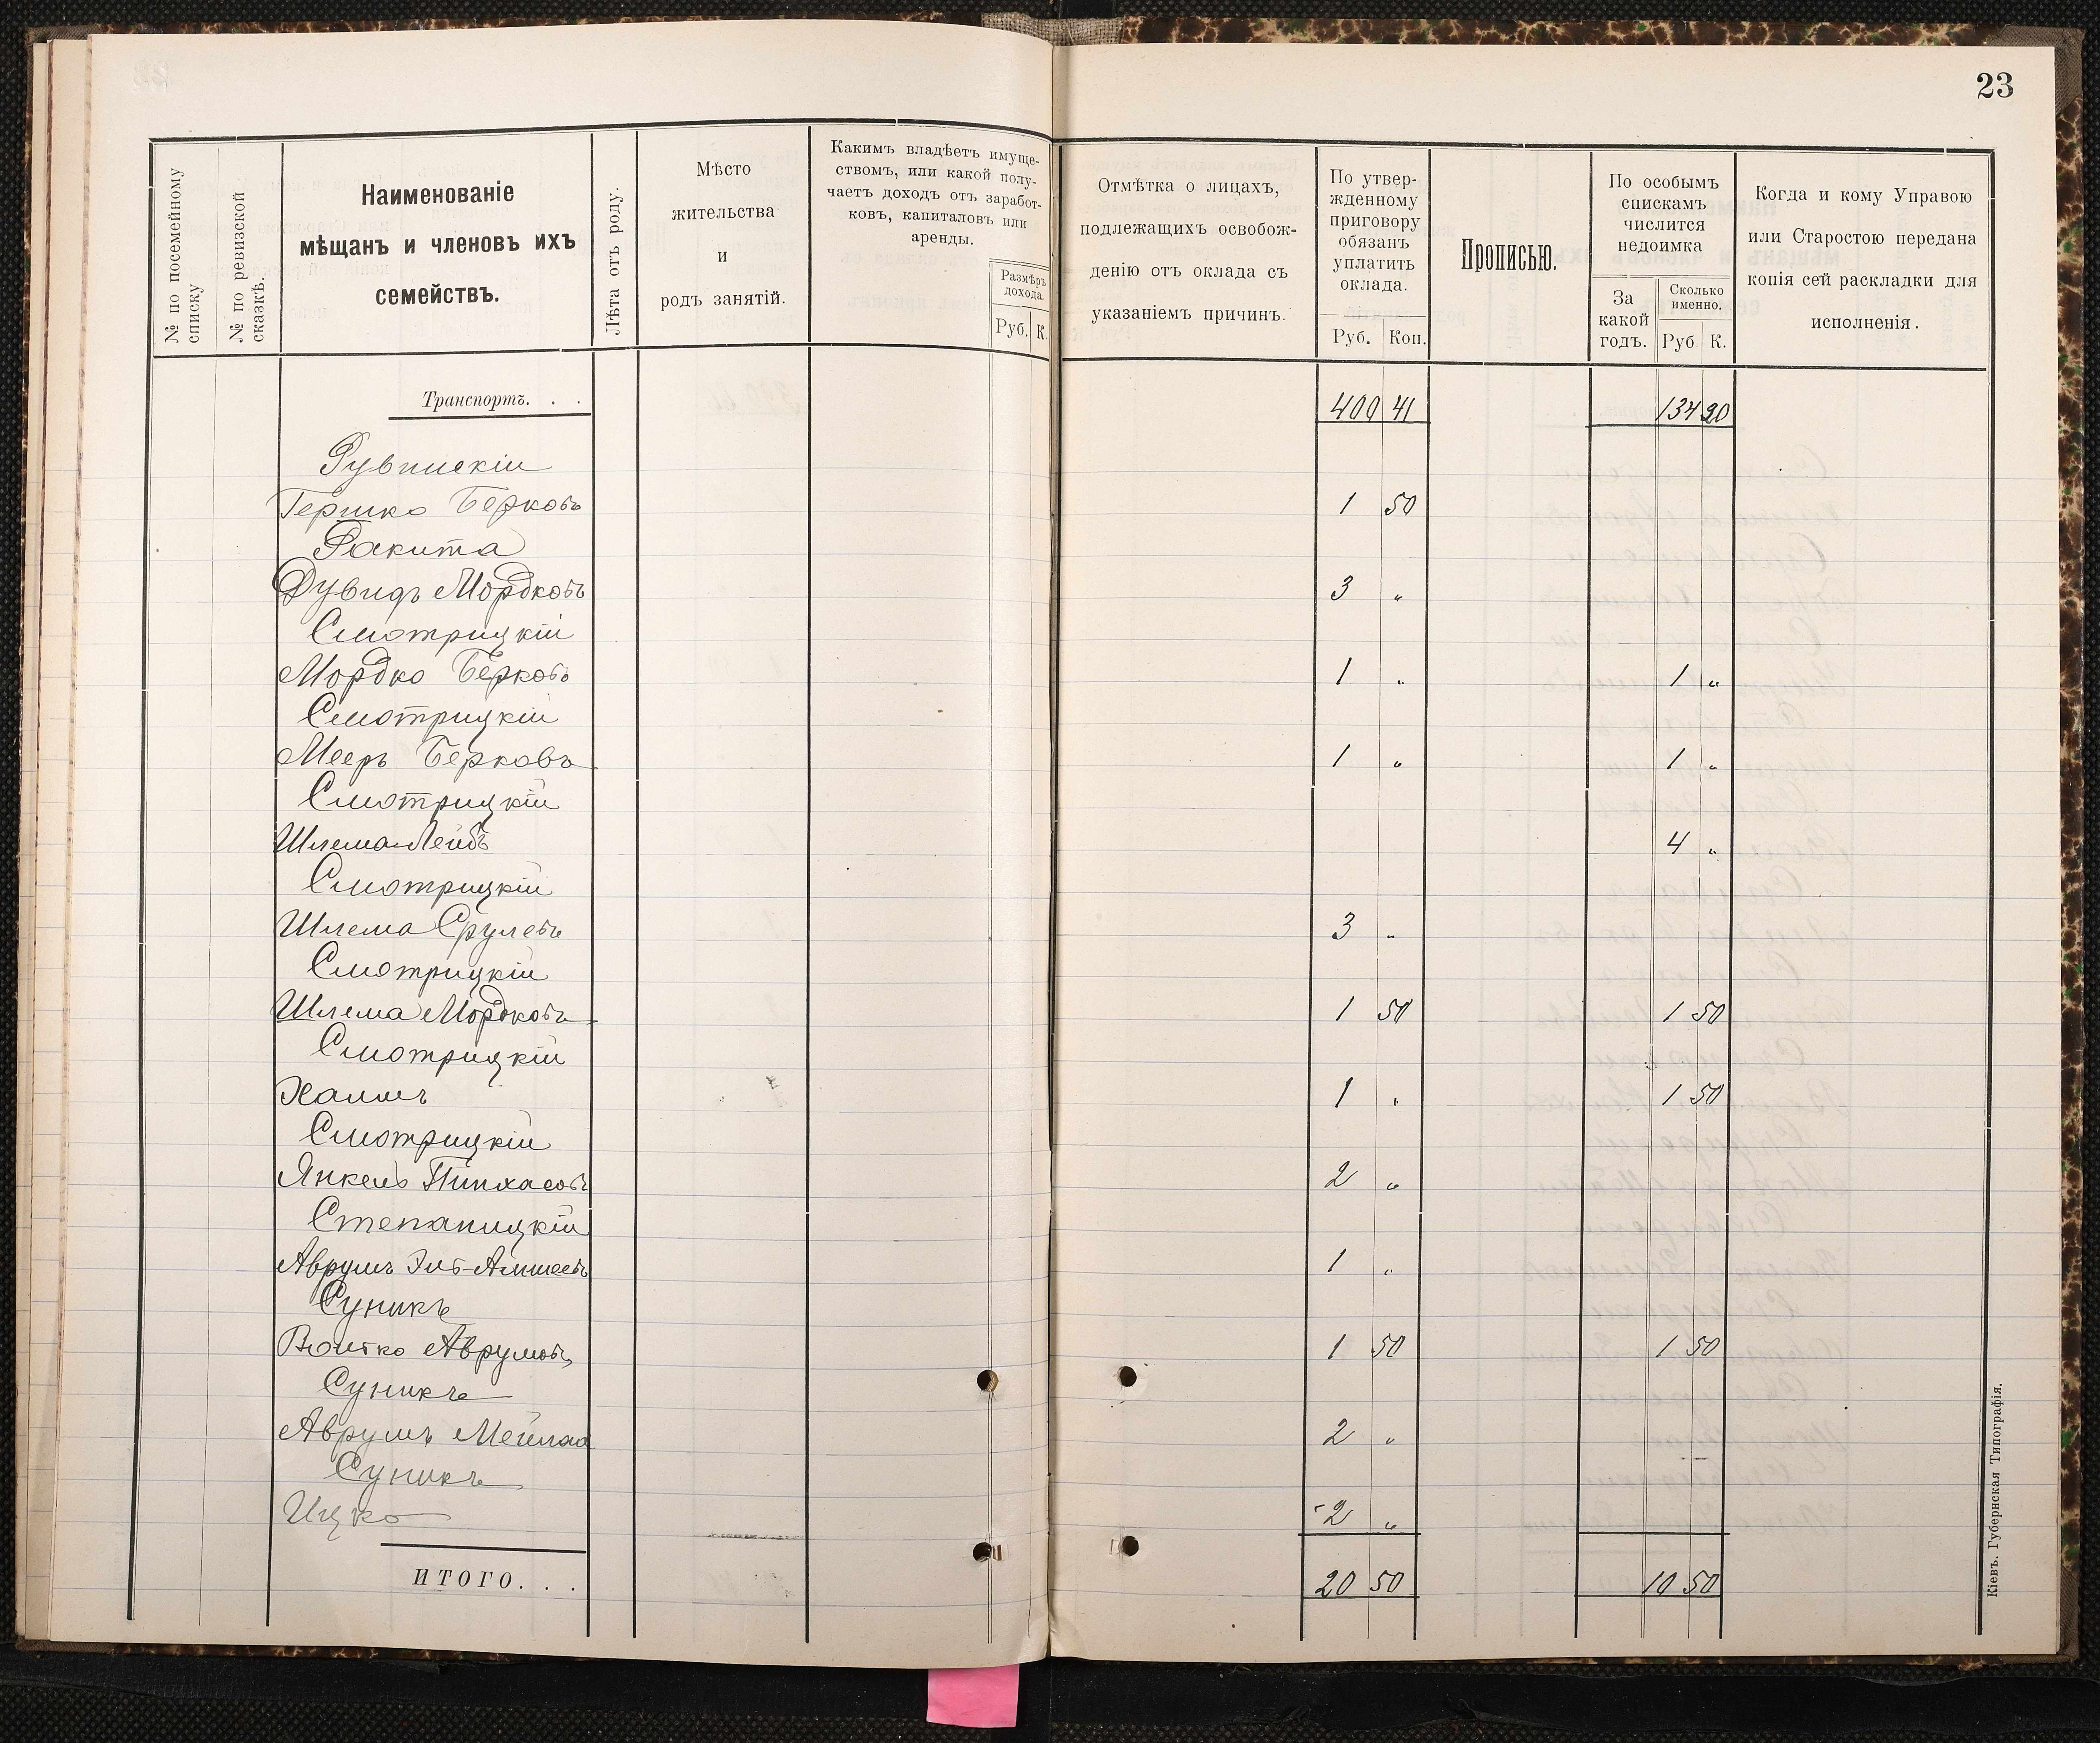 23
№ по посемейному списку
№ по ревизской сказкѣ.
Наименованіе
мѣщанъ и членовъ ихъ
семействъ.
Лѣта отъ роду.
Мѣсто
жительства
и
родъ занятій.
Какимъ владѣетъ имуще-
ствомъ, или какой полу-
чаетъ доходъ отъ заработ-
ковъ, капиталовъ или
аренды.
Размѣръ
дохода.
Руб. К.
Отмѣтка о лицахъ,
подлежащихъ освобож-
денію отъ оклада съ
указаніемъ причинъ.
По утвер-
жденному
приговору
обязанъ
уплатить
оклада.
Руб. Коп.
Прописью.
По особымъ
спискамъ
числится
недоимка
За
какой
годъ.
Сколько
именно.
Руб К.
Когда и кому Управою
или Старостою передана
копія сей раскладки для
исполненія.
Транспортъ. . . 400 41 134 90
Рувинскій
Гершко Берковъ 1 50
Ракита
Дувидъ Мордковъ 3 "
Смотрицкій
Мордко Берковъ 1 " 1 "
Смотрицкій
Мееръ Берковъ 1 " 1 "
Смотрицкій
Шлема-Лейбъ 4 "
Смотрицкій
Шлема Срулевъ 3 "
Смотрицкій
Шлема Мордковъ 1 50 1 50
Смотрицкій
Хаимъ 1 " 1 50
Смотрицкій
Янкель Пинхасовъ 2 "
Степаницкій
Аврумъ 1 "
Суникъ
Волтко Аврумовъ 1 50 1 50
Суникъ
Аврумъ 2 "
Суникъ
Ицко 2 "
ИТОГО. . . 20 50 10 50
Кіевъ. Губернская Типографія.